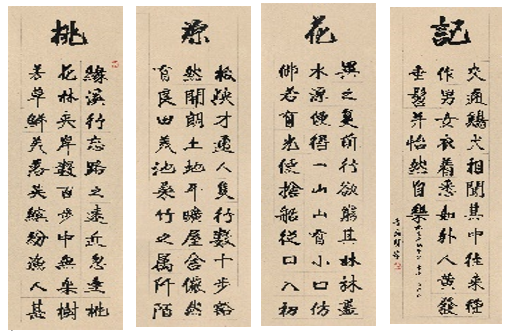 桃
緣溪行忘路之遠近忽逢桃
花林夾岸數百步中無雜樹
芳草鮮美落英繽紛漁人甚
源
極狹才通人復行數十步豁
然開朗土地平曠屋舍儼然
有良田美池桑竹之屬阡陌
花
異之復前行欲窮其林林盡
水源便得一山山有小口仿
佛若有光便捨船從口入初
記
交通鷄犬相聞其中往來種
作男女衣着悉如外人黃發
垂髫并怡然自樂